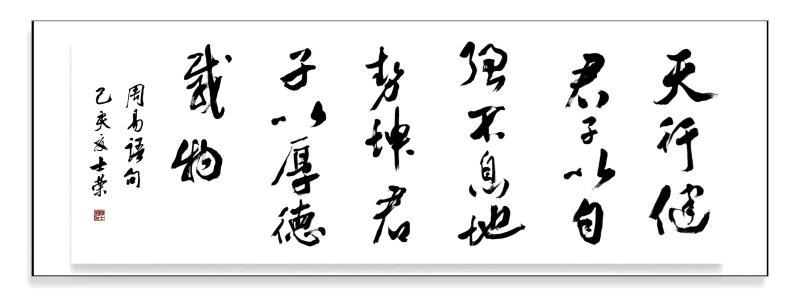 天行健
君子以自
强不息地
势坤君
子以厚德
载物
周易语句
己亥夏士荣